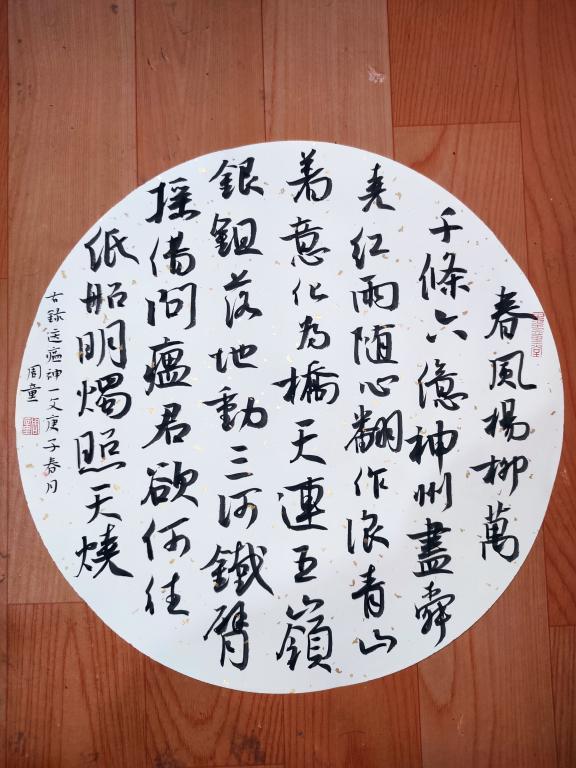 春風楊柳萬
千條六億神州盡舜
尧红雨随心翻作浪青山
着意化为橋天連五嶺
銀鉏落地動三河鐵臂
摇借問瘟君欲何往
纸船明燭照天燒
右錄送瘟神一文庚子春月
周童